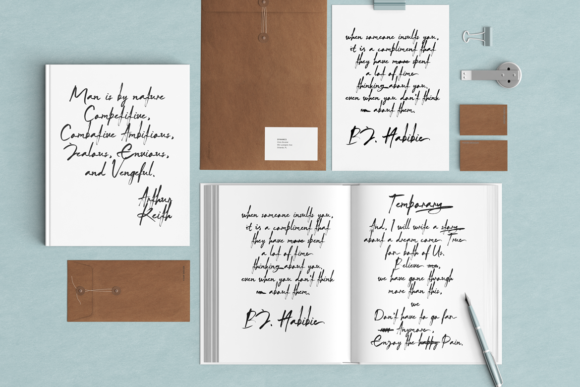 Man is by nature
Competitive,
Combative Ambitious,
Jealous, Envious,
and Vengeful.
Arthur
Keith
when someone insults you,
it is a compliment that
they have spent
a lot of time
thinking about you,
even when you don't think
about them.
BJ. Habibie
when someone insults you,
it is a compliment that
they have spent
a lot of time
thinking about you,
even when you don't think
about them.
BJ. Habibie
Temporary
And, I will write a story
about a dream come True
for both of Us.
Believe me,
we have gone through
more than this,
we
Don't have to go far
Anymore,
Enjoy the happy Pain.